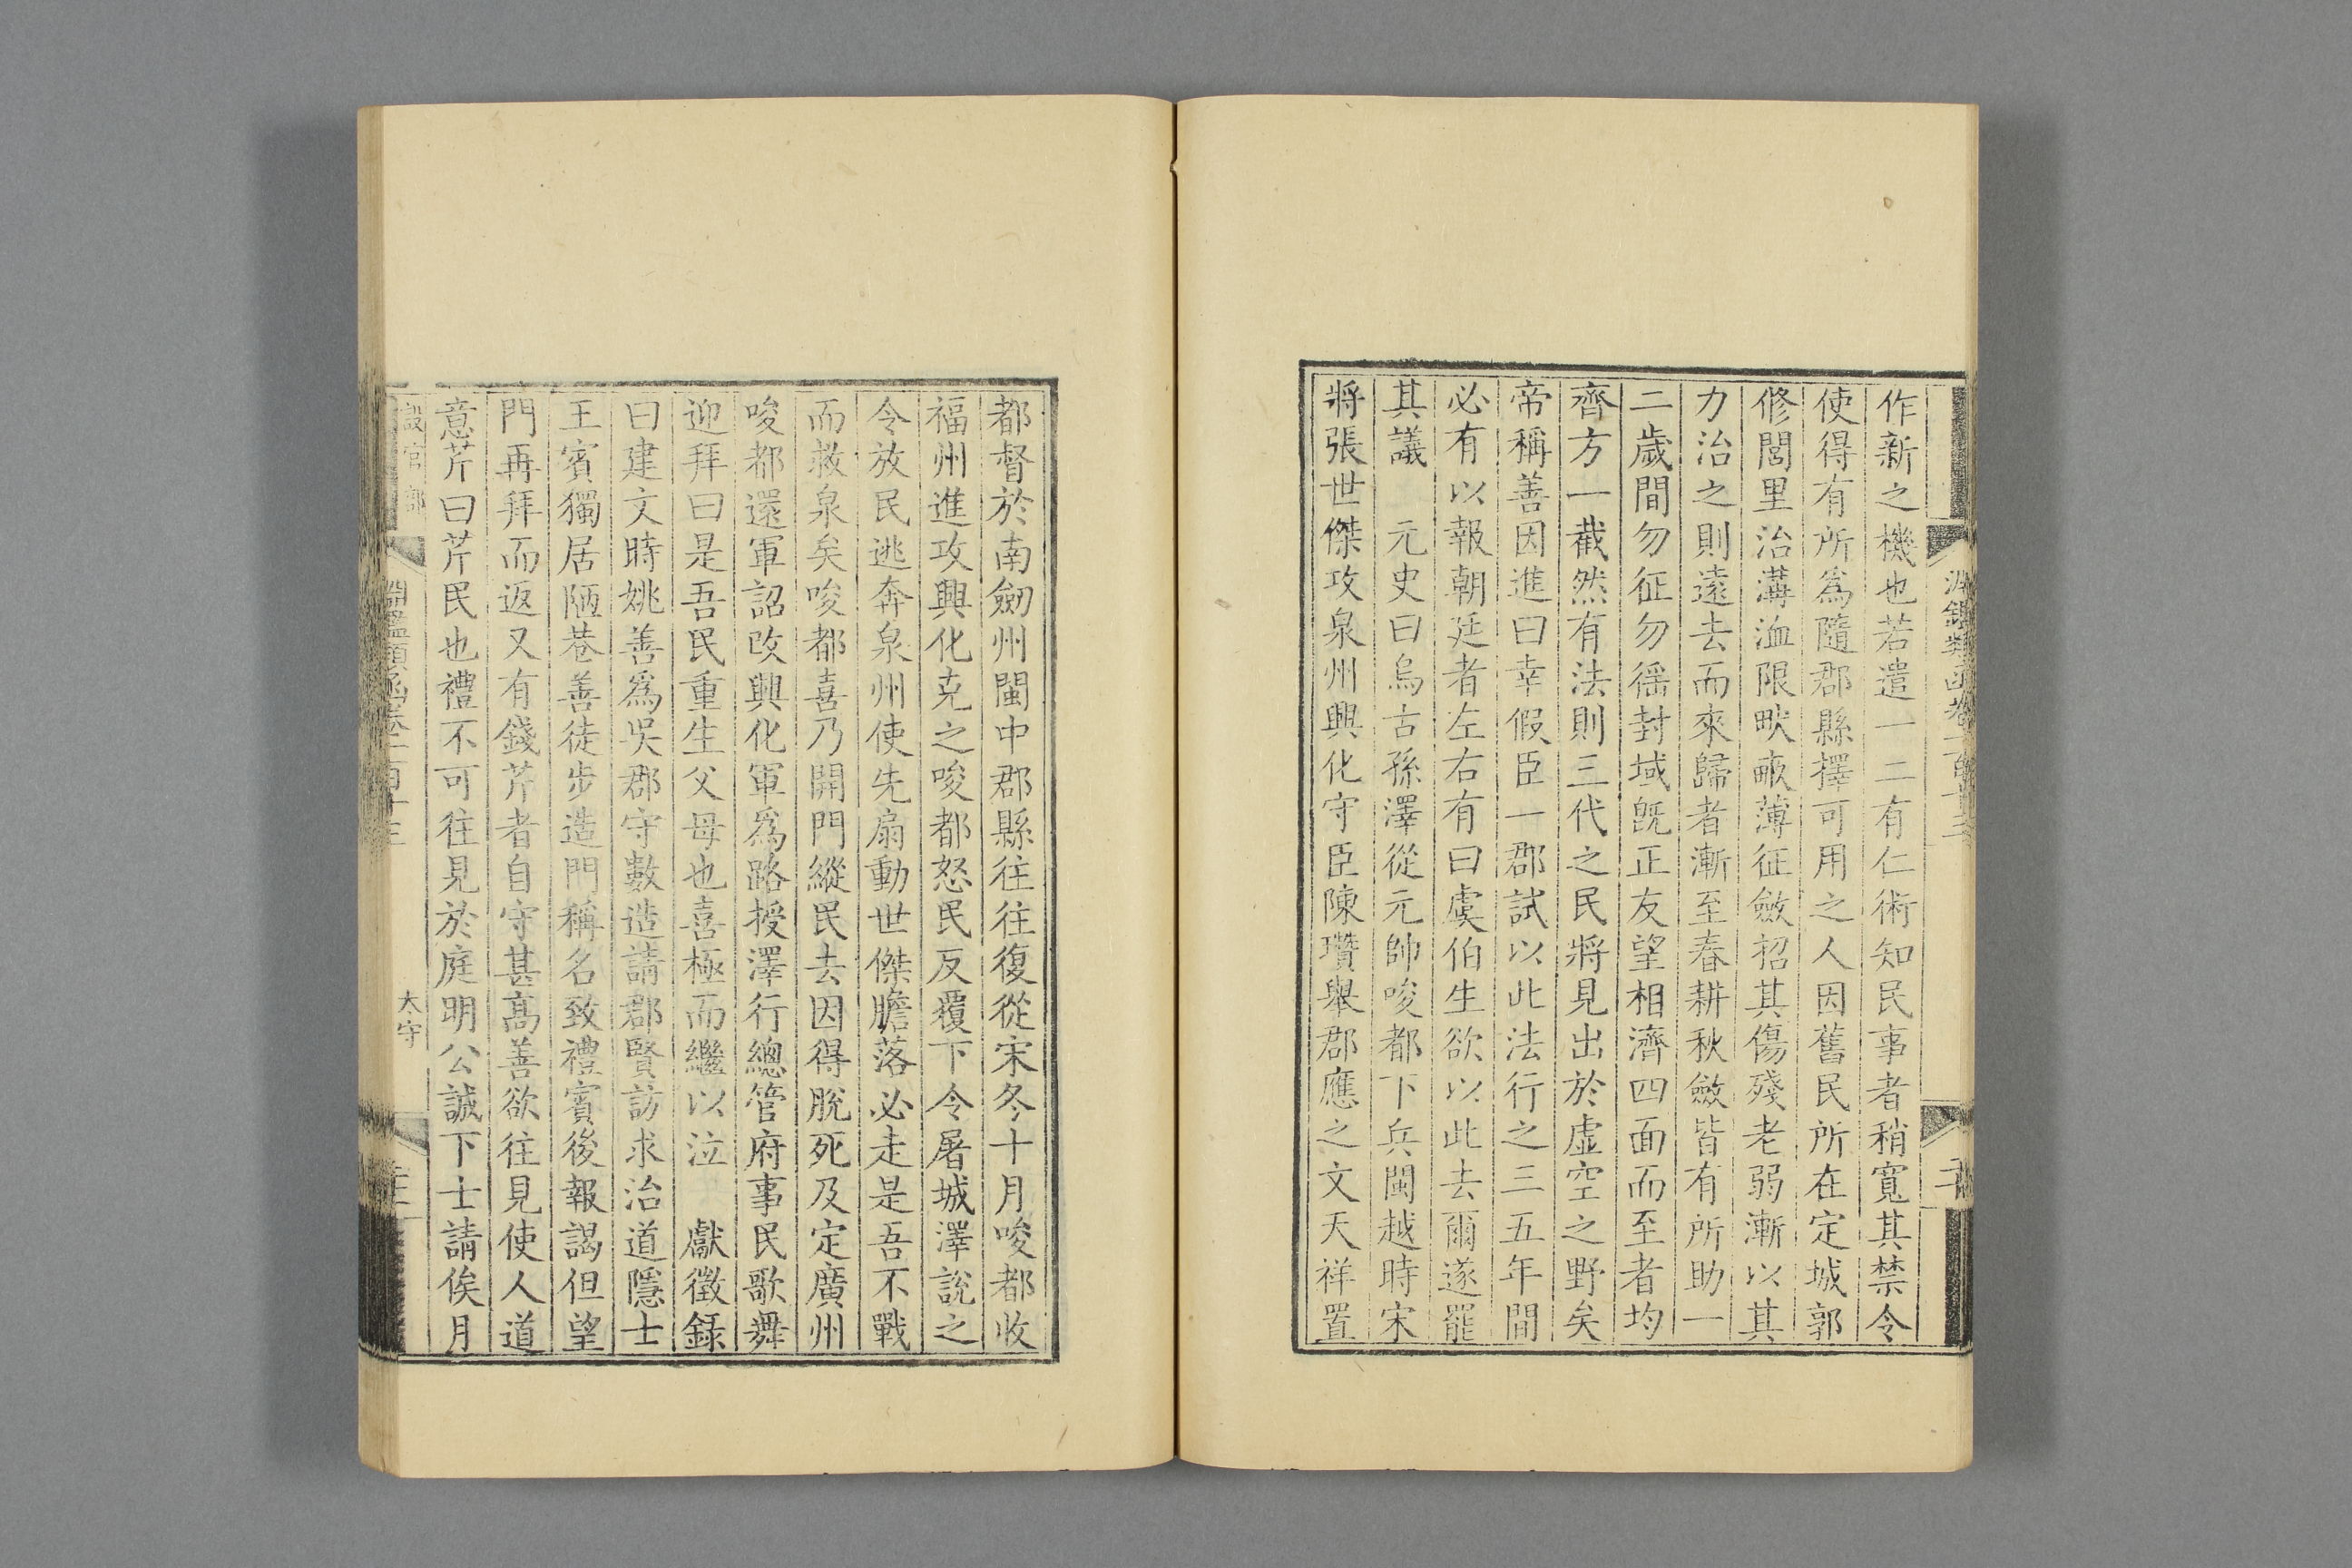 作新之機也若遣一二有仁術知民事者稍寬其禁令
使得有所為隨郡縣擇可用之人因舊民所在定城郭
修閭里治溝洫限畎畝薄征斂招其傷殘老弱漸以其
力治之則遠去而來歸者漸至春耕秋斂皆有所助一
二歲間勿征勿徭封域既正友望相濟四面而至者均
齊方一截然有法則三代之民將見出於虛空之野矣
帝稱善因進曰幸假臣一郡試以此法行之三五年間
必有以報朝廷者左右有曰虞伯生欲以此去爾遂罷
其議　元史曰烏古孫澤從元帥唆都下兵閩越時宋
將張世傑攻泉州興化守臣陳瓚舉郡應之文天祥置
都督於南劒州閩中郡縣往往復從宋冬十月唆都收
福州進攻興化克之唆都怒民反覆下令屠城澤說之
令放民逃奔泉州使先扇動世傑膽落必走是吾不戰
而救泉矣唆都喜乃開門縱民去因得脫死及定廣州
唆都還軍詔改興化軍爲路授澤行總管府事民歌舞
迎拜曰是吾民重生父母也喜極而繼以泣　獻徵錄
曰建文時姚善爲吳郡守數造請郡賢訪求治道隱士
王賓獨居陋巷善徒步造門稱名致禮賓後報謁但望
門再拜而返又有錢芹者自守甚高善欲往見使人道
意芹曰芹民也禮不可往見於庭明公誠下士請俟月
設官部
太守